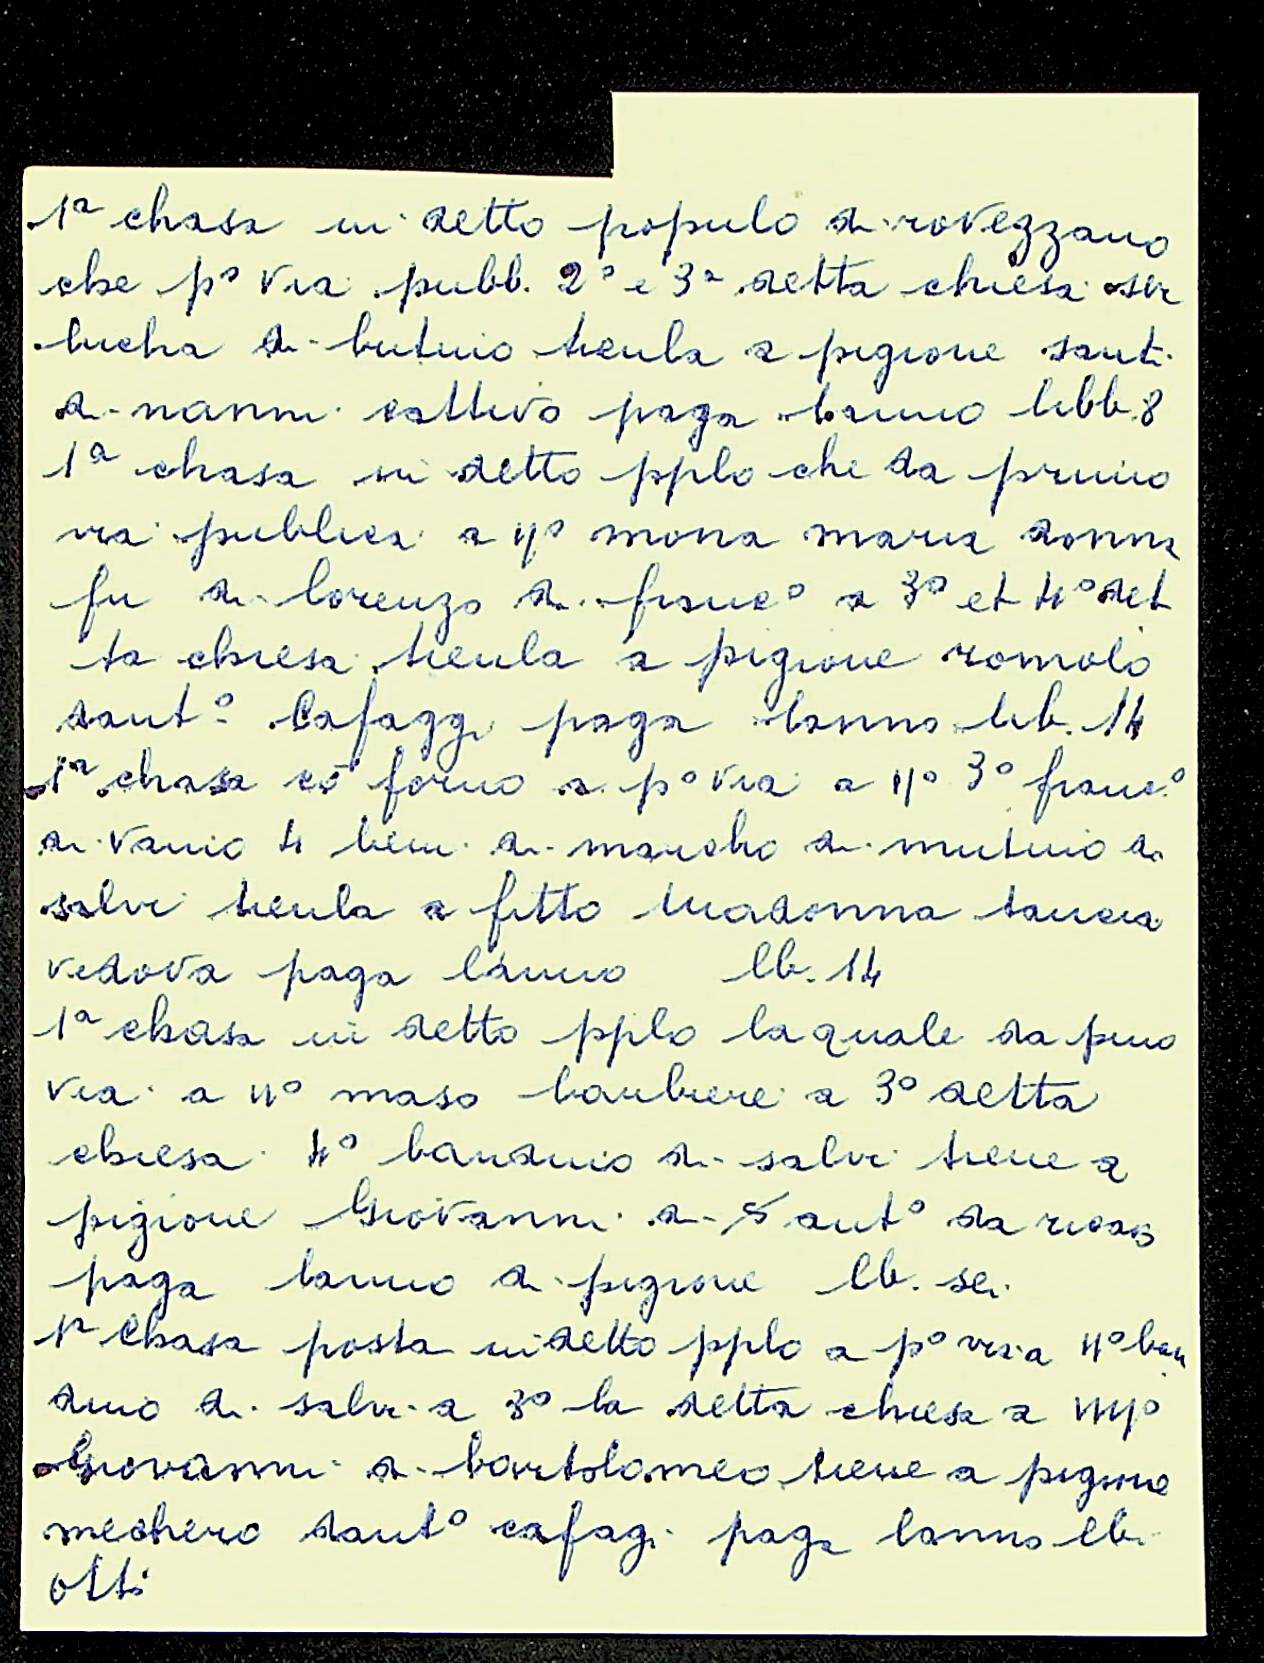 1ª chasa in detto popolo di rovezzano
che p° via pubb. 2° e 3ª detta chiesa ser
lucha di butinio tiella a pigione santi
di nanni cattivo paga lanno libb. 8
1ª chasa in detto pplo che da primo
via publica a 11° mona maria donna
fu di lorenzo di franc° a 3° et 4° det
ta chiesa tienla a pigione romolo
dant° Cafaggi paga lanno lib. 14
1ª chasa cõ forno a p° via a 11° 3° franc°
di vanio 4 beni di marcho di mutinio di
salvi tienla a fitto Madonna tancia
vedova paga lanno lb. 14
1ª chasa in detto pplo la quale da pmo
via a 11° maso barbiere a 3° detta
chiesa 4° banduio di salvi tiene a
pigione Giovanni di S ant° da
paga lanno di pigione lb. sei
1ª Chasa posta in detto pplo a p° via 11° ban
duio di salvi a 3° la detta chiesa a 1111°
Giovanni di bartolomeo tiene a pigione
mechero dant° cafagi paga lanno lb.
otti